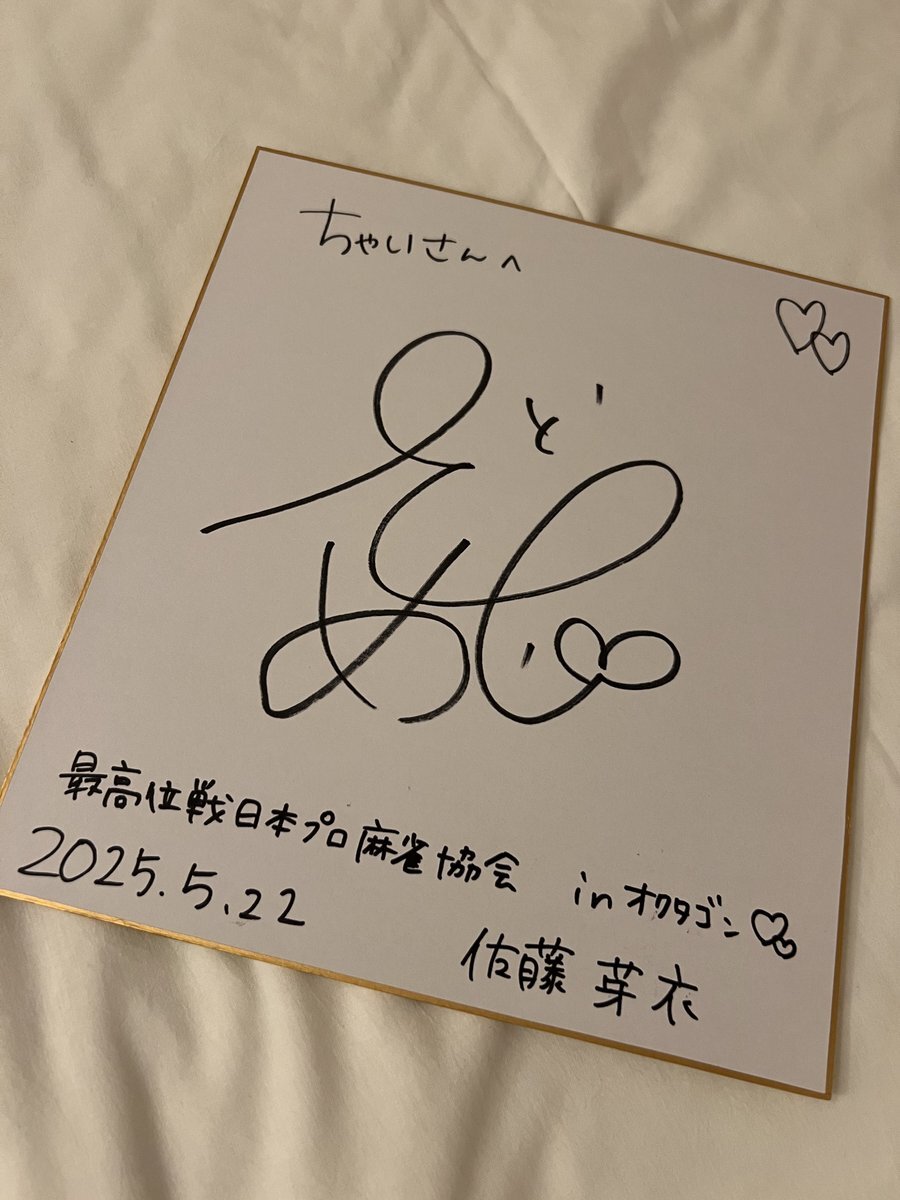 ちゃいさんへ
最高位戦日本プロ麻雀協会
2025.5.22
inオクタゴン
佐藤 芽衣